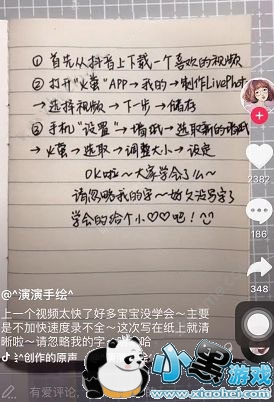 ① 首先从抖音上下载一个喜欢的视频
② 打开“火萤”APP→我的→制作LivePhot
→选择视频→下一步→储存
③ 手机“设置”→墙纸→选取新的墙纸
→火萤→选取→调整大小→设定
OK啦~大家学会了么~
请忽略我的字~好久没写字了
学会的给个小♡♡吧!
2382
186
348
@^演演手绘^
上一个视频太快了好多宝宝没学会~主要
是不加快速度录不全~这次写在纸上就清
晰啦~请忽略我的字 哈
创作的原声
有爱评论,
小黑游戏
www.xiaohei.com